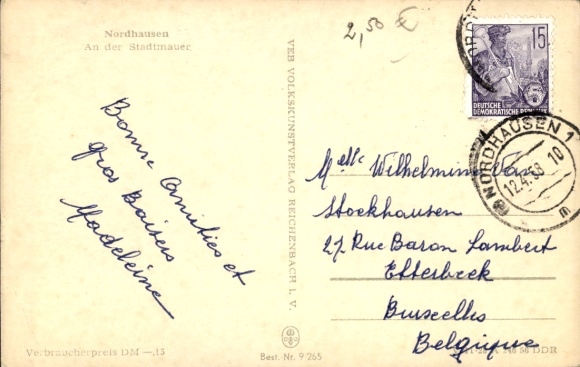 Nordhausen
An der Stadtmauer
2,50 €
15
DEUTSCHE
DEMOKRATISCHE REPUBLIK
NORDHAUSEN 1
12.4.58 10
m
Bonne Amities et
gros Baisers
Madeleine
VEB VOLKSKUNSTVERLAG REICHENBACH I. V.
Melle Wilhelmine Van
Stockhausen
27 Rue Baron Lambert
Etterbeek
Bruxelles
Belgique
Verbraucherpreis DM —,15
Best.-Nr. 9/265
DDR